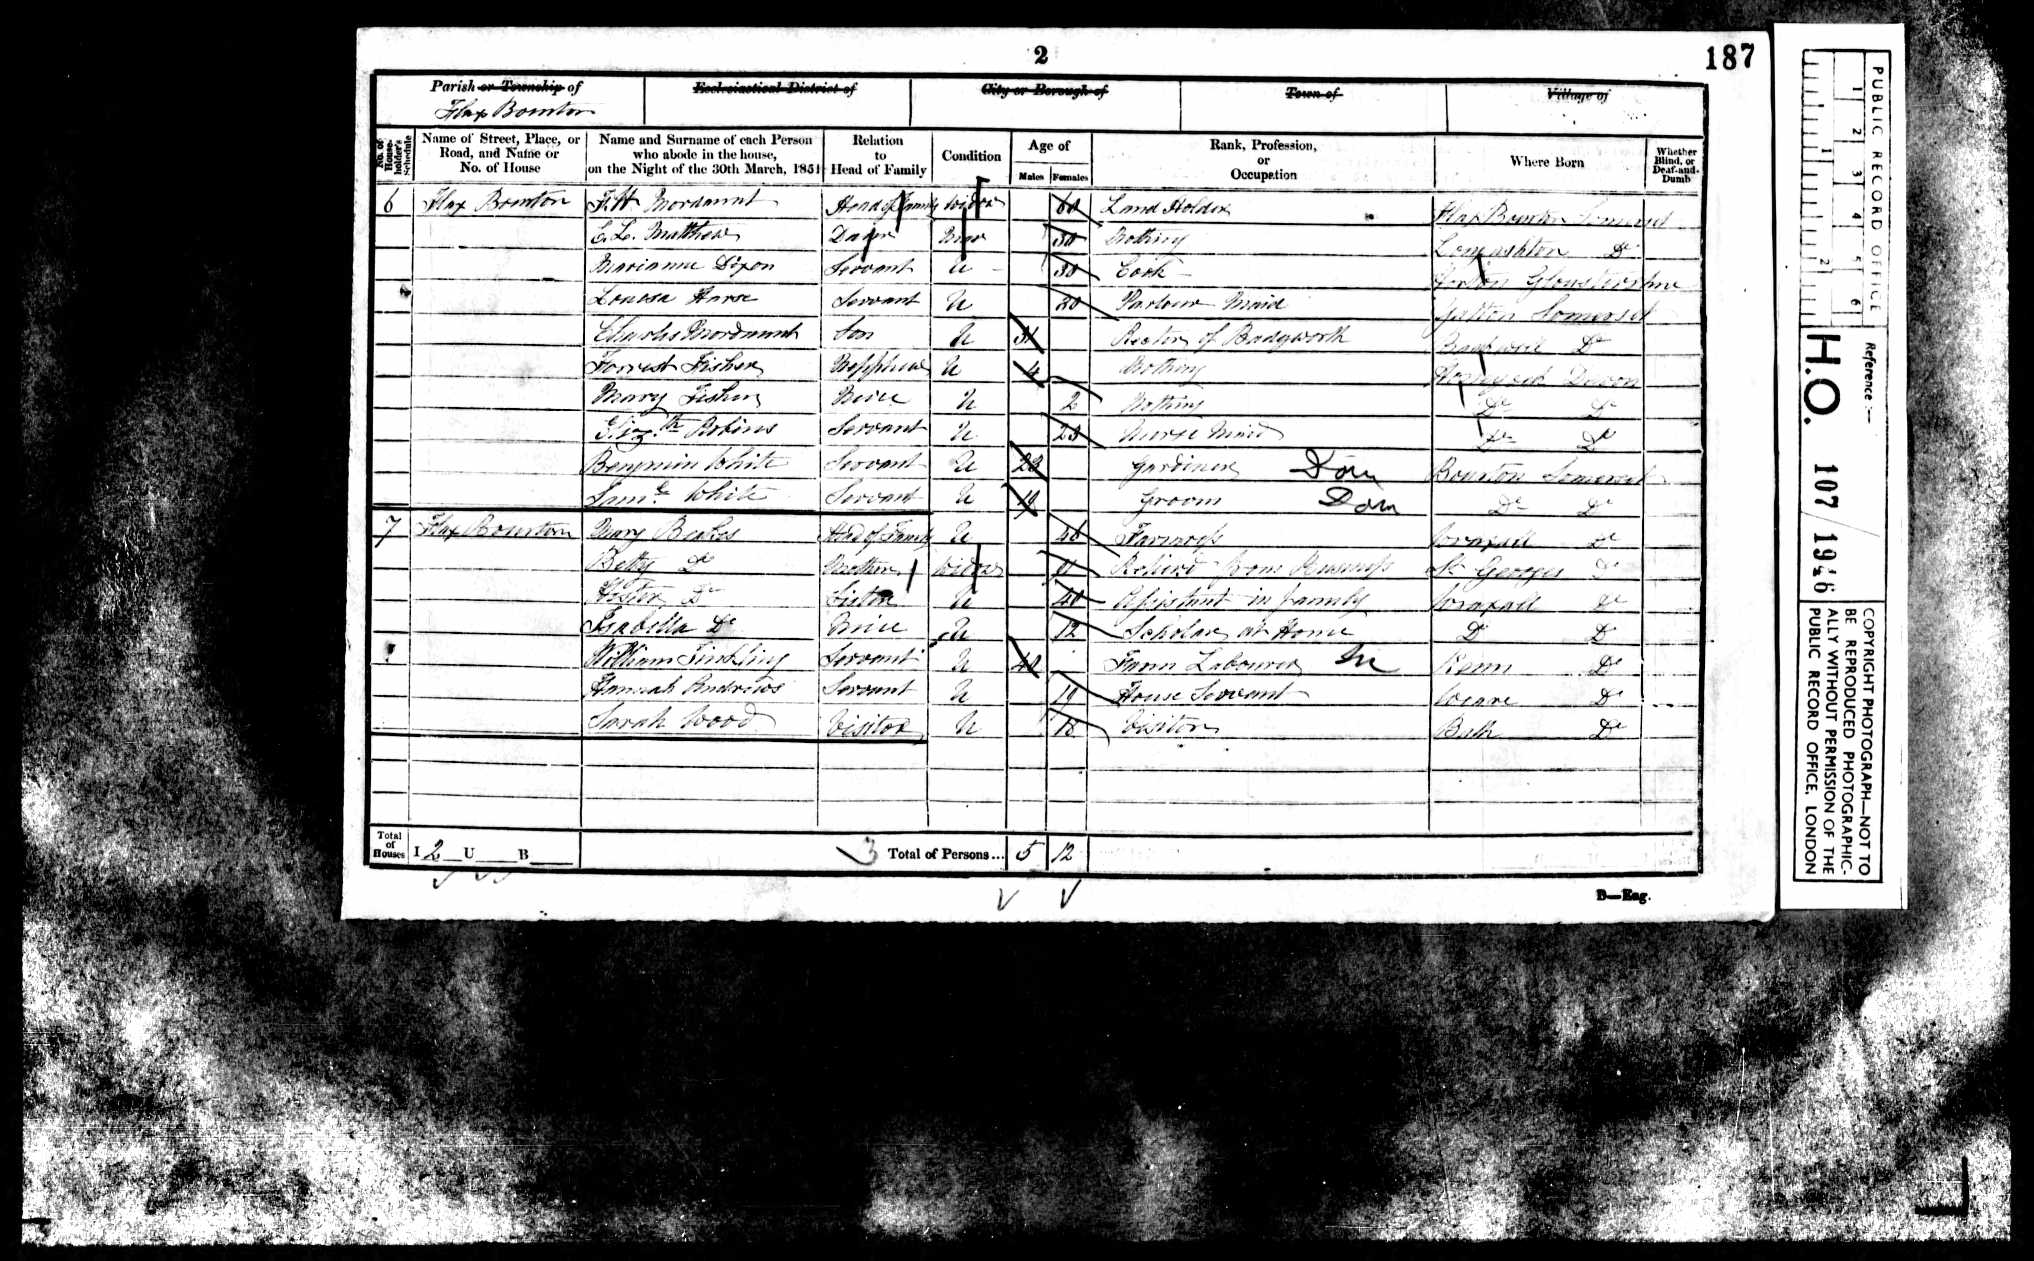 2
187
Parish or Township of
Ecclesiastical District of
City or Borough of
Town of
Village of
Flax Bourton
No. of House-holder's Schedule
Name of Street, Place, or Road, and Name or No. of House
Name and Surname of each Person who abode in the house, on the Night of the 30th March, 1851
Relation to Head of Family
Condition
Age of
Males
Females
Rank, Profession, or Occupation
Where Born
Whether Blind, or Deaf-and-Dumb
6 Flax Bourton Mordaunt Head of Family Widow 60 Land Holder Flax Bourton Somerset
C. L. Matthew Daur Mar 30 Nothing Longashton Do
Marianne Dixon Servant U 30 Cook Gloustershire
Louosa Servant U 20 Parlour Maid Somerset
Charles Mordaunt Son U 31 Rector of Badgworth Do
Forrest Fisher Nepphew U 4 Nothing Devon
Marry Fisher Niece U 2 Nothing Do Do
Elizth Robins Servant U 23 Nurse Maid Do Do
Benjmin White Servant U 23 Gardiner Dom Bourton Somerset
Saml White Servant U 19 Groom Dom Do Do
7 Flax Bourton Mary Beakes Head of Family U 46 Farmress Wraxall Do
Betty Do Mother Widow Retired from Business St Georges Do
Hester Do Sister U 40 Assistant in family Wraxall Do
Isabella Do Niece U 12 Scholar at Home Do Do
William Servant U 40 Farm Labourer Kenn Do
Hannah Andrews Servant U 19 House Servant Weare Do
Sarah Wood Visitor U 18 Visitor Bath Do
Total of Houses
I 2 U B
3 Total of Persons... 5 12
D—Eng.
PUBLIC RECORD OFFICE
1 2 3 4 5 6
1 2
Reference:—
H.O. 107/1946
COPYRIGHT PHOTOGRAPH—NOT TO
BE REPRODUCED PHOTOGRAPHIC-
ALLY WITHOUT PERMISSION OF THE
PUBLIC RECORD OFFICE, LONDON